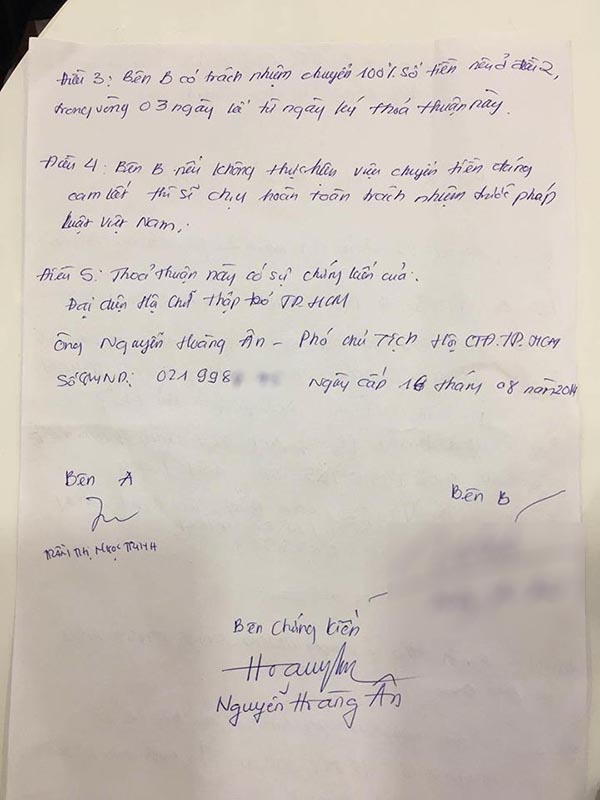 Điều 3: Bên B có trách nhiệm chuyển 100% số tiền nêu ở điều 2,
trong vòng 03 ngày kể từ ngày ký thoả thuận này.
Điều 4: Bên B nếu không thực hiện việc chuyển tiền đúng
cam kết thì sẽ chịu hoàn toàn trách nhiệm trước pháp
luật Việt Nam.
Điều 5: Thoả thuận này có sự chứng kiến của:
Đại diện Hội Chữ thập đỏ TP.HCM
Ông Nguyễn Hoàng Ân - Phó chủ Tịch Hội CTĐ.TP.HCM
Số CMND: 021998 Ngày cấp 16 tháng 08 năm 2014
Bên A
Bên B
Trần Thị Ngọc Trinh
Bên Chứng kiến
Nguyễn Hoàng Ân